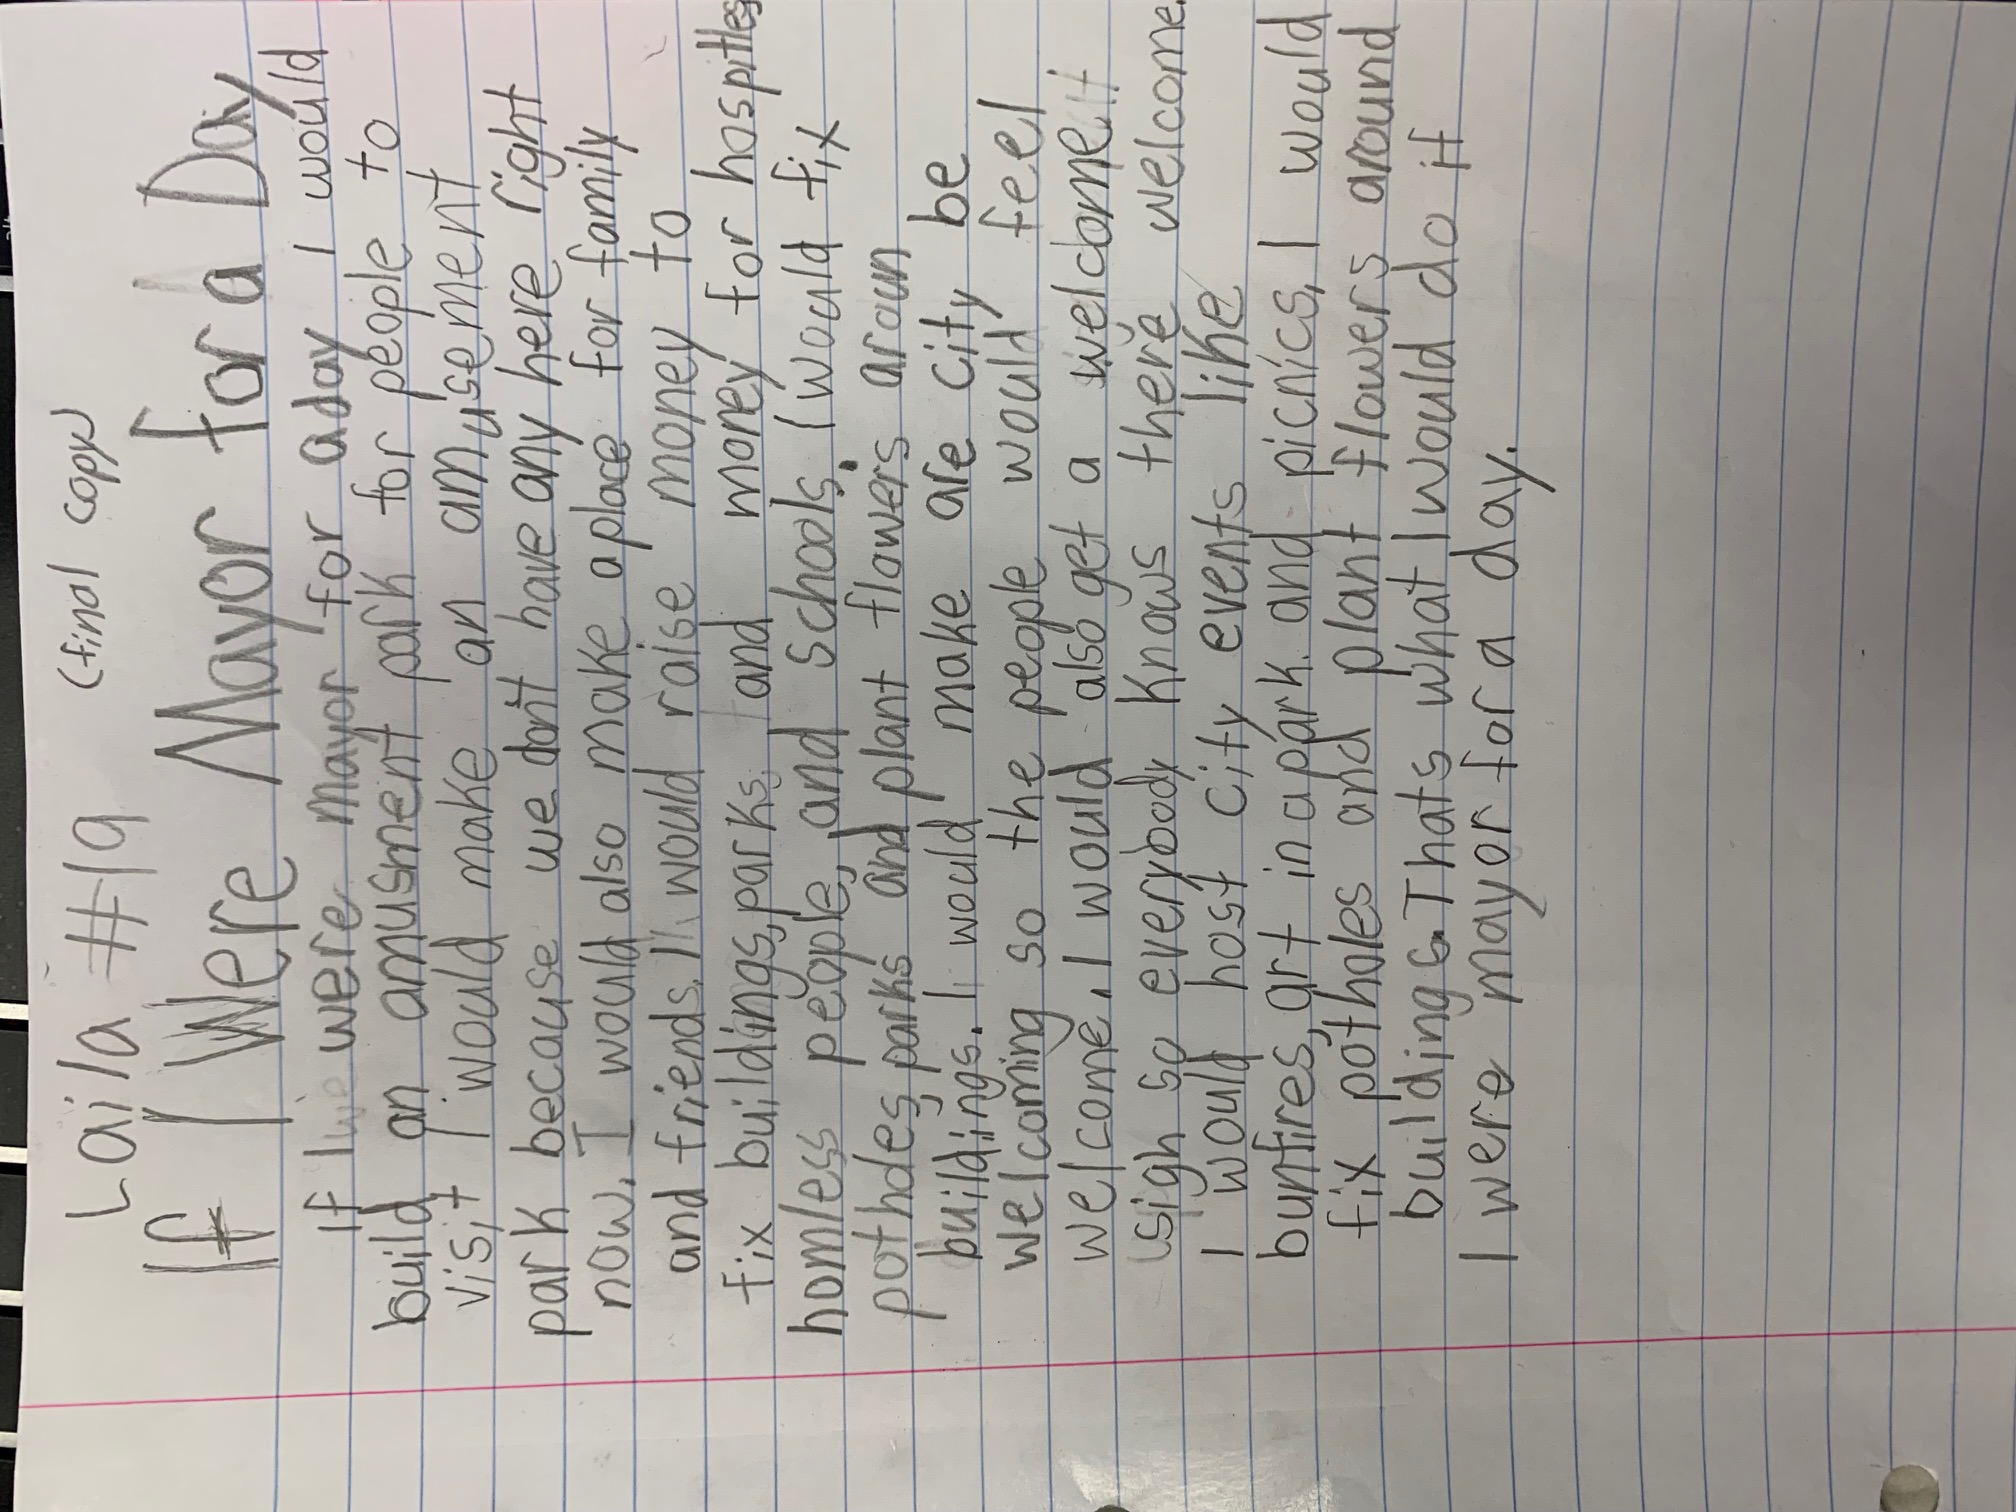 Laila #19 (final copy)
If I Were Mayor for a Day
If I were mayor for a day I would
build an amusment park for people to
visit I would make an amusement
park because we don't have any here right
now. I would also make a place for family
and friends. I would raise money to
fix buildings, parks, and money for hospitles
homless people, and schools. I would fix
potholes, parks and plant flowers aroun
buildings. I would make are city be
welcoming so the people would feel
welcome. I would also get a welcome
sigh so everybody knows there welcome.
I would host city events like
bunfires, art in a park and picnics, I would
fix potholes and plant flowers around
buildings. Thats what I would do if
I were mayor for a day.